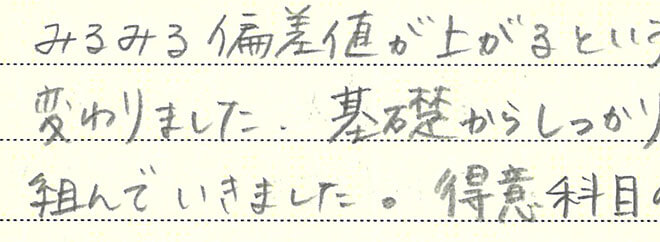 みるみる偏差値が上がるという
変わりました。基礎からしっかり
組んでいきました。得意科目の